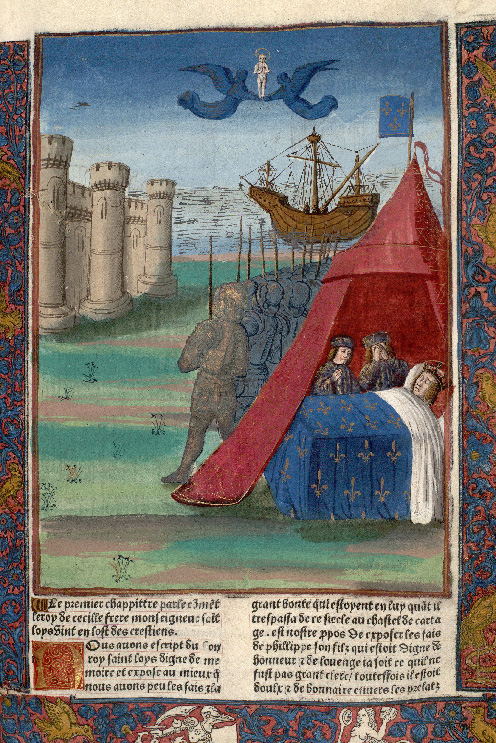 Le premier chappittre parle cõmẽt
le roy de cecille frere monseigneur saīt
loys vint en lost des crestiens.
Ous auons escript du bon
roy saint loys digne de me
moire et expose au mieux q̄
nous auons peu les fais ⁊ la
grant bonte qui estoyent en luy quãt il
trespassa de ce siecle au chastel de carta
ge. est nostre ꝓpos de exposer les fais
de philippe son filz qui estoit digne d̕
honneur ⁊ de louenge ia soit ce quil ne
fust pas grant clerc/ touteffois il estoit
doulx ⁊ de bonnaire enuers les prelatz